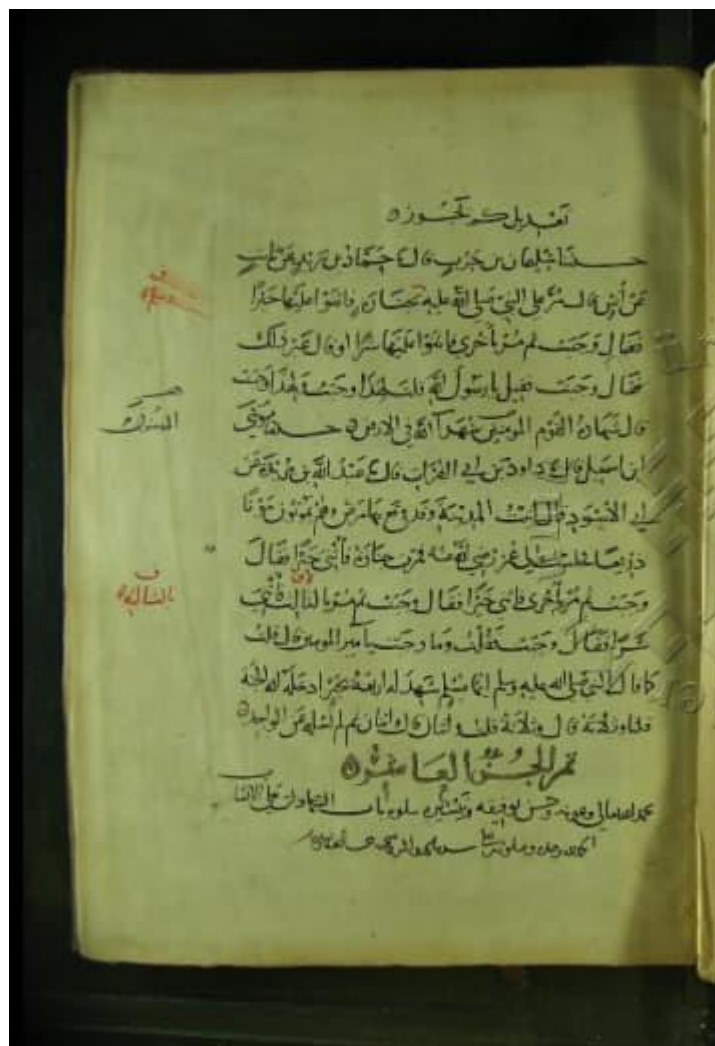 تعديل كم يجوز
حدثنا سليمن بن حرب قال حماد بن زيد عن ثابت
عن أنس قال مر على النبي صلى الله عليه بجنازة فاثنوا عليها خيرا
فقال وجبت ثم مر بأخرى فاثنوا عليها شرا او قال غير ذلك
فقال وجبت فقيل يا رسول الله قلت لهذا وجبت ولهذا وجبت
قال شهادة القوم المومنين شهدآ الله في الارض حدثنا موسى
المومنون
ابن اسمعيل قال داود بن ابي الفرات قال عبد الله بن بريدة عن
ابي الاسود قال اتيت المدينة وقد وقع بها مرض وهم يموتون موتا
ذريعا فجلست الى عمر رضي الله عنه فمرت جنازة فأثني خيرا فقال
وجبت ثم مر بأخرى فاثني خيرا فقال وجبت ثم مر بالثالثة فأثني
بالثالثة
شرا فقال وجبت فقلت وما وجبت يا امير المومنين قال قلت
كما قال النبي صلى الله عليه وسلم ايما مسلم شهد له اربعة بخير ادخله الله الجنة
قلنا وثلاثة قال وثلاثة قلت واثنان قال واثنان ثم لم نسله عن الواحد
تم الجزء العاشر
بحمد الله تعالى وعونه وحسن توفيقه يتلوه باب الشهادة على الانساب